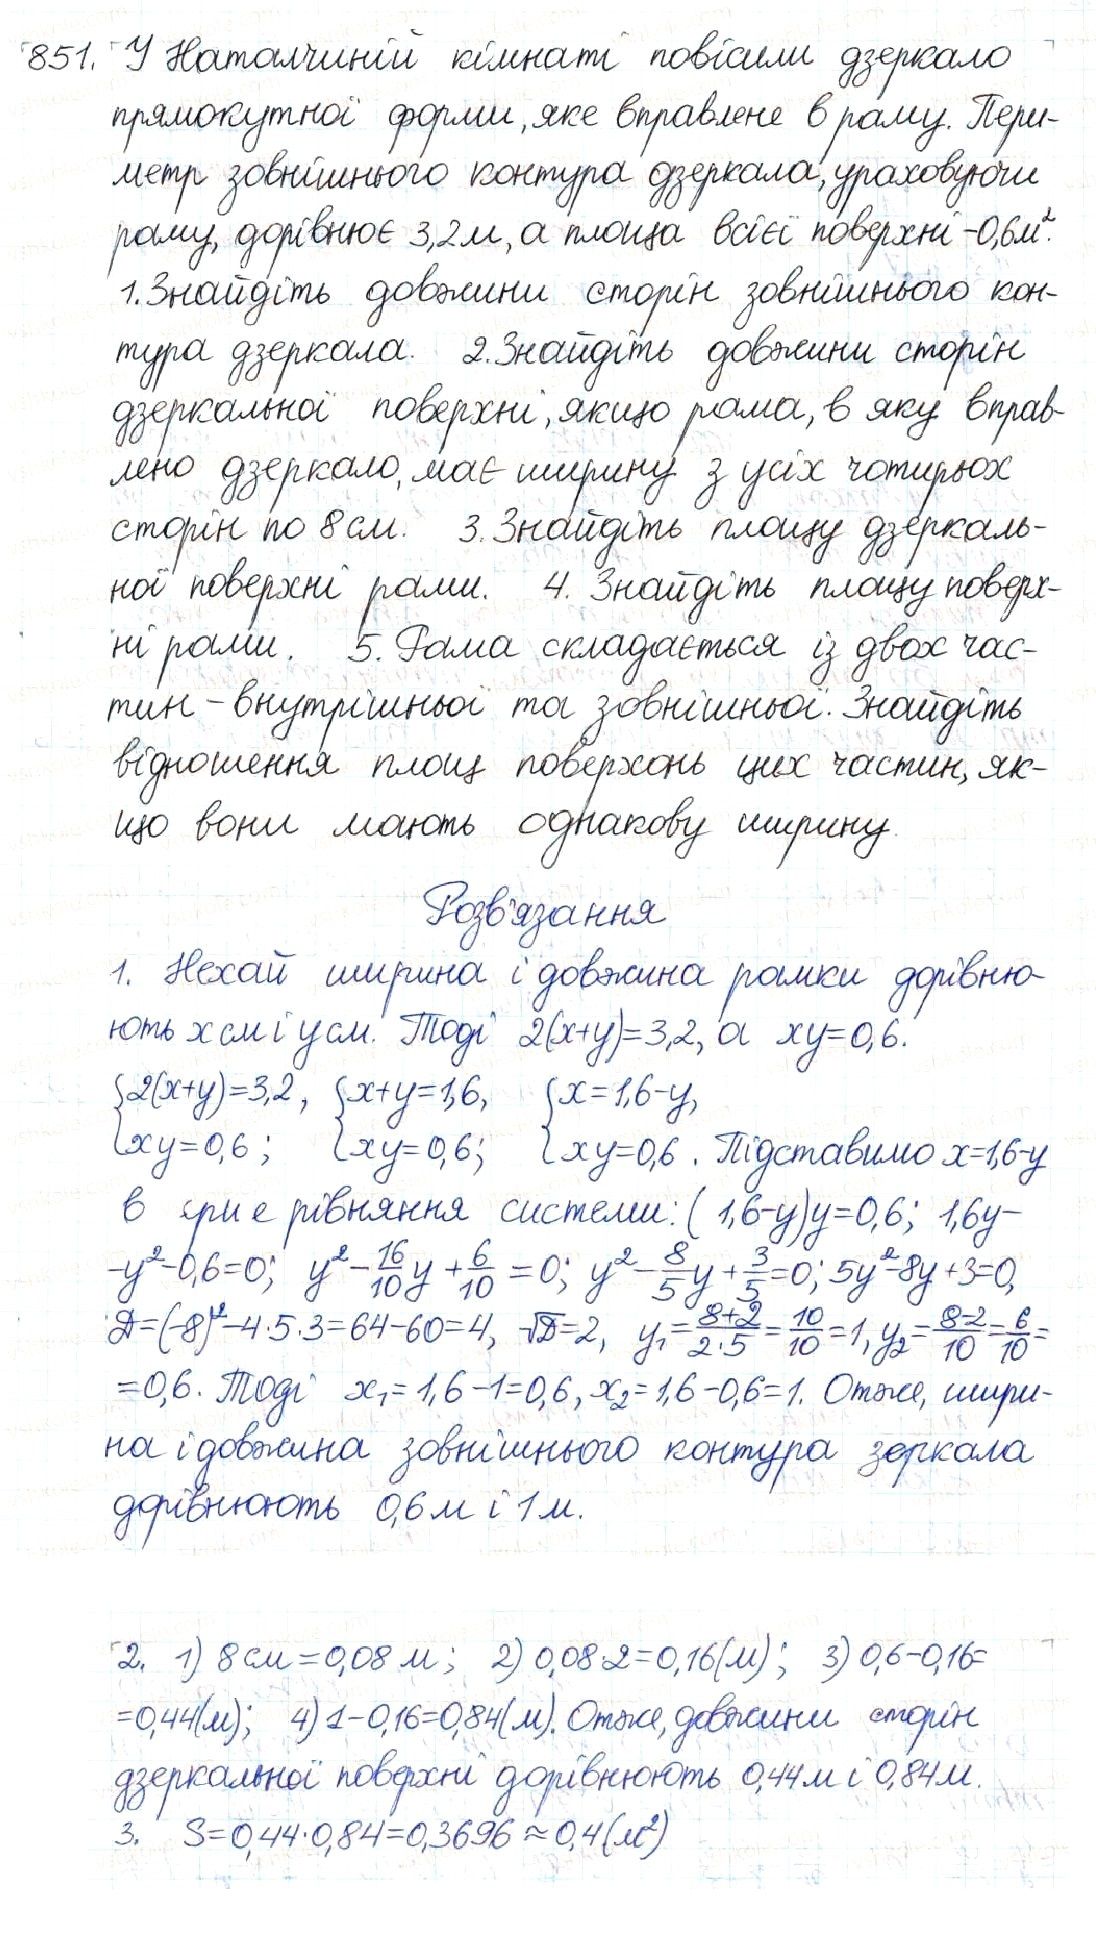 851. У Наталчиній кімнаті повісили дзеркало
прямокутної форми, яке вправлене в раму. Пери-
метр зовнішнього контура дзеркала, ураховуючи
раму, дорівнює 3,2 м, а площа всієї поверхні - 0,6 м².
1. Знайдіть довжини сторін зовнішнього кон-
тура дзеркала. 2. Знайдіть довжини сторін
дзеркальної поверхні, якщо рама, в яку вправ-
лено дзеркало, має ширину з усіх чотирьох
сторін по 8 см. 3. Знайдіть площу дзеркаль-
ної поверхні рами. 4. Знайдіть площу поверх-
ні рами. 5. Рама складається із двох час-
тин - внутрішньої та зовнішньої. Знайдіть
відношення площ поверхонь цих частин, як-
що вони мають однакову ширину.
Розв'язання
1. Нехай ширина і довжина рамки дорівню-
ють x см і y см. Тоді 2(x+y)=3,2, а xy=0,6.
{2(x+y)=3,2, {x+y=1,6, {x=1,6-y,
{xy=0,6; {xy=0,6; {xy=0,6. Підставимо x=1,6-y
в рівняння системи: (1,6-y)y=0,6; 1,6y-
-y²-0,6=0; y²-16/10y+6/10=0; y²-8/5y+3/5=0; 5y²-8y+3=0,
Д=(-8)²-4·5·3=64-60=4, √Д=2, y₁=8+2/2·5=10/10=1, y₂=8-2/10=6/10=
=0,6. Тоді x₁=1,6-1=0,6, x₂=1,6-0,6=1. Отже, шири-
на і довжина зовнішнього контура зеркала
дорівнюють 0,6 м і 1 м.
2. 1) 8 см = 0,08 м; 2) 0,08·2=0,16(м); 3) 0,6-0,16=
=0,44(м); 4) 1-0,16=0,84(м). Отже, довжини сторін
дзеркальної поверхні дорівнюють 0,44 м і 0,84 м.
3. S=0,44·0,84=0,3696≈0,4(м²)